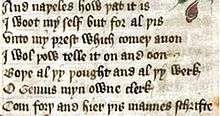 And naþeles how þat it is
I woot my self but for al þis
Vnto my prest which comeþ anon
I wol þow telle it on and oon
Boþe al þy þought and al þy werk
O Genius myn owne clerk
Com forþ and hier þis mannes schrifte